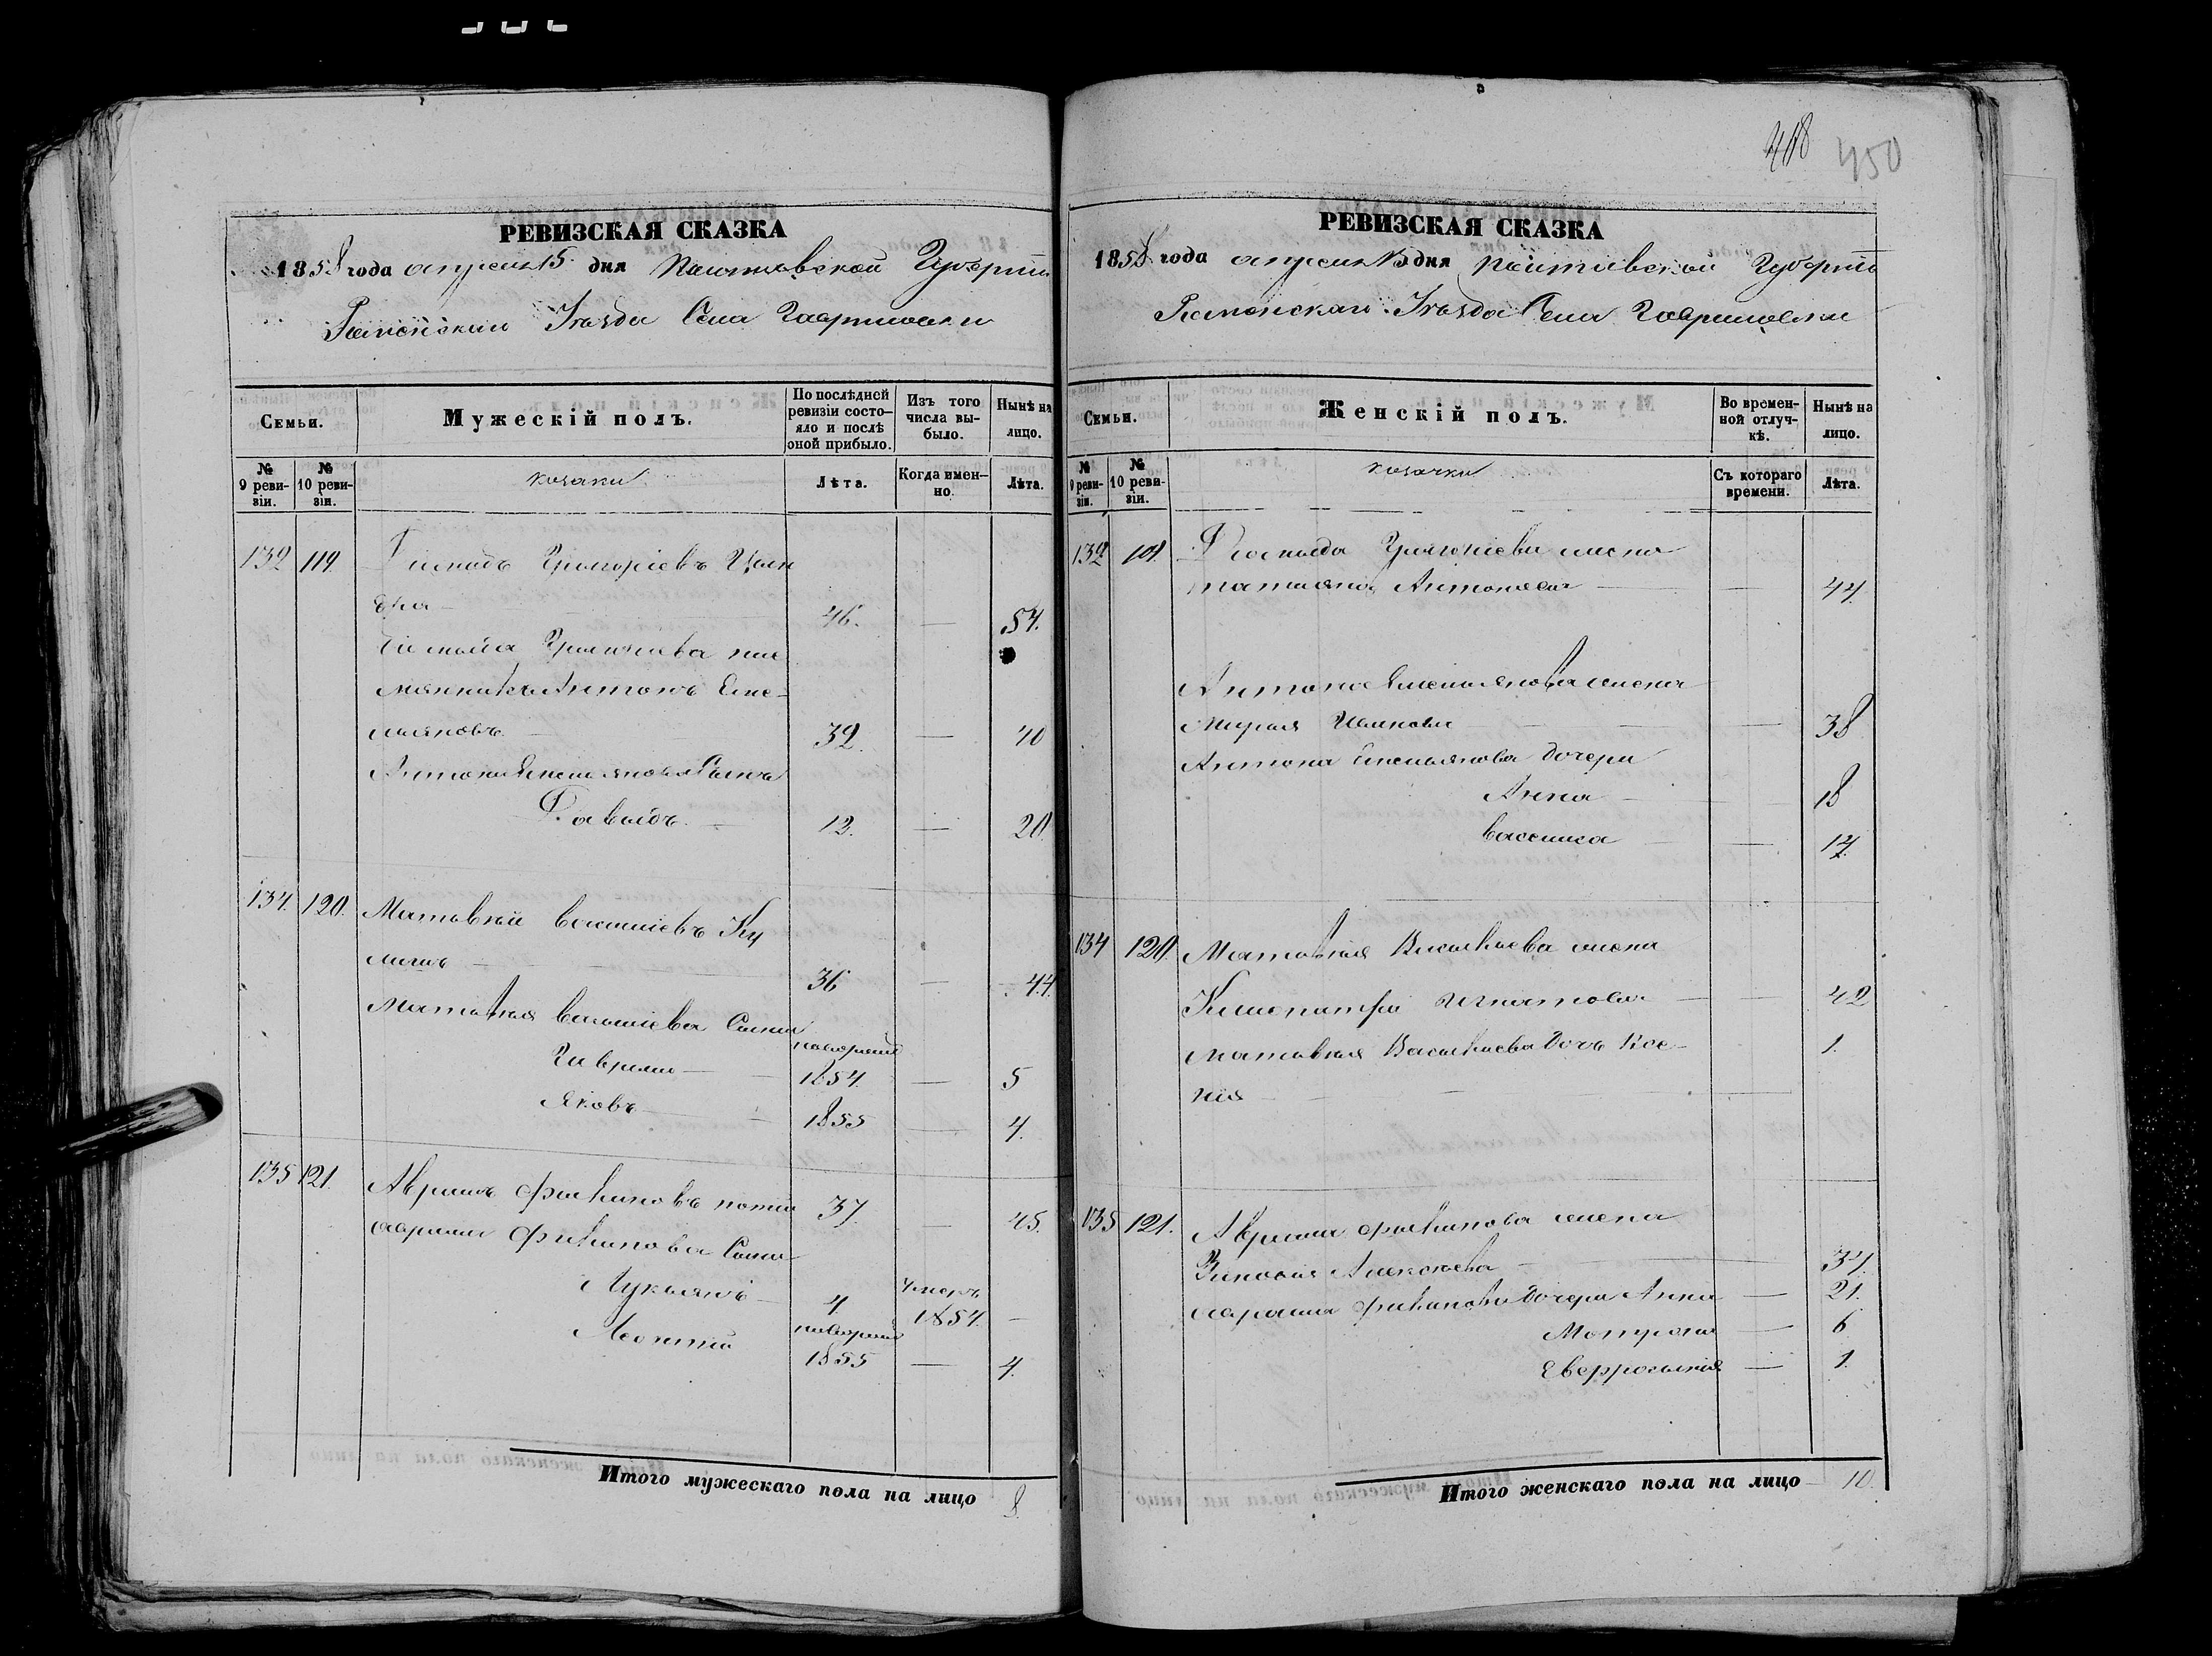 418 450
РЕВИЗСКАЯ СКАЗКА
1858 года апреля 15 дня Полтавской Губерніи
Роменскаго Уѣзда Села Гавришовки
Семьи.
Мужескій полъ.
По послѣдней ревизіи состояло и послѣ оной прибыло.
Изъ того числа выбыло.
Нынѣ на лицо.
№ 9 ревизіи.
№ 10 ревизіи.
козаки
Лѣта.
Когда именно.
Лѣта.
132 119. Григорьевъ
46. — 54.
Григорьева пле
мянникъ Антонъ Еме-
льяновъ 32. — 40
Антона Емельянова Сынъ
Давыдъ. 12. — 20
134. 120. Матвѣй Васильевъ Ку
36 — 44.
Матвѣя Васильева Сыны
новорожд
Гаврило — 1854. — 5
Яковъ — 1855 — 4.
135 121. Аврамъ 37. — 45.
Аврама Сыны
Лукьянъ — 4. умеръ 1854. —
новорожд
Леонтій 1855 — 4.
Итого мужескаго пола на лицо 8.
РЕВИЗСКАЯ СКАЗКА
1858 года апреля 15 дня Полтавской Губерніи
Роменскаго Уѣзда Села Гавришовки
Семьи.
Женскій полъ.
Во временной отлучкѣ.
Нынѣ на лицо.
№ 9 ревизіи.
№ 10 ревизіи.
козачки
Съ котораго времени.
Лѣта.
132 Григорьева жена
татьяна Антонова — — 44.
Антона Емельянова жена
Марья Иванова — — 38
Антона Емельянова дочери
Анна — 18
Василиса — 17.
134 120 Матвѣя Васильева жена
Клеопатра Игнатова — — 42
Матвѣя Васильева дочь Ксе- 1.
нія —
135 121. Аврама жена
Зиновія Алексѣева — 37.
Аврама дочери Анна — 21.
Мотрона — 6
Евфросинія — 1.
Итого женскаго пола на лицо — 10.